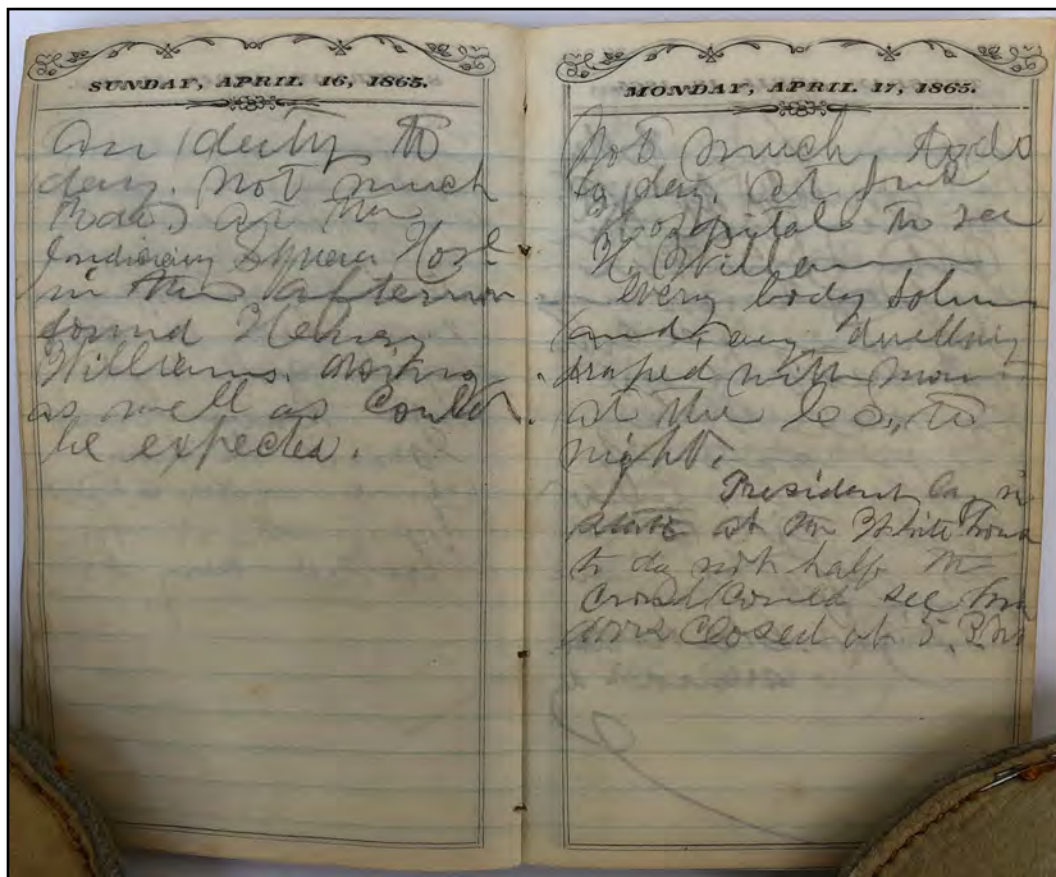 SUNDAY, APRIL 16, 1865.
am duty to
day. not much
todo, at the
Square Hosp
in the afternoon
found Henry
Williams. doing
as well as could
be expected.
MONDAY, APRIL 17, 1865.
Not much todo
to day. at
Hospital to see
H. William
every body Solum
and, dwelling
draped with
at the Co., to
night.
President in
state at the White house
to day not half the
crowd could see him
dors closed at 5. P.M